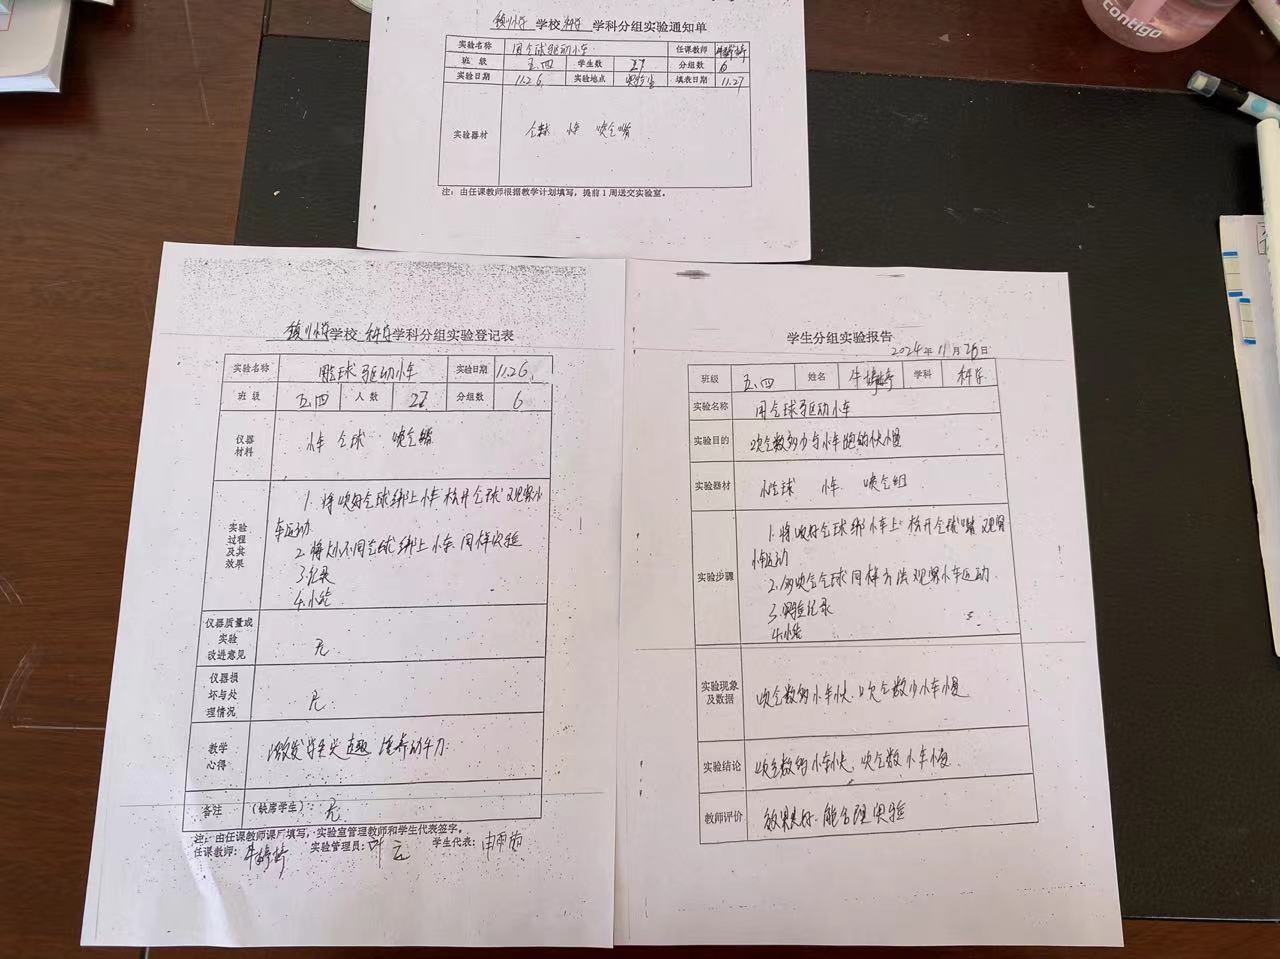 学校 科学 学科分组实验通知单
实验名称 用气球驱动小车 任课教师
班 级 五.四 学生数 27 分组数 6
实验日期 11.26. 实验地点 实验室 填表日期 11.27
实验器材 气球 小车 吹气嘴
注：由任课教师根据教学计划填写，提前1周送交实验室。
contigo
学校 科学 学科分组实验登记表
实验名称 用气球驱动小车 实验日期 11.26.
班 级 五.四 人 数 27 分组数 6
仪器材料 小车 气球 吹气嘴
实验过程及其效果 1. 将吹好气球绑上小车 松开气球 观察小
车运动.
2. 将大小不同气球绑上小车 同样实验
3.记录
4.小结
仪器质量或实验改进意见 无.
仪器损坏与处理情况 无.
教学心得 激发学生兴趣 培养动手力.
备注 （缺席学生）： 无
注：由任课教师课厂填写，实验室管理教师和学生代表签字。
任课教师： 实验管理员：叶 学生代表：申雨
学生分组实验报告
2024年11月26日
班级 五.四 姓名 学科 科学
实验名称 用气球驱动小车
实验目的 吹气数多少与小车跑的快慢
实验器材 气球 小车 吹气组
实验步骤 1.将吹好气球绑小车上 松开气球嘴 观察
小车运动
2. 吹气气球同样方法观察小车运动.
3.实验记录
4.小结
实验现象及数据 吹气数多小车快.吹气数少小车慢
实验结论 吹气数多小车快 吹气数 小车慢
教师评价 效果良好. 能合理实验